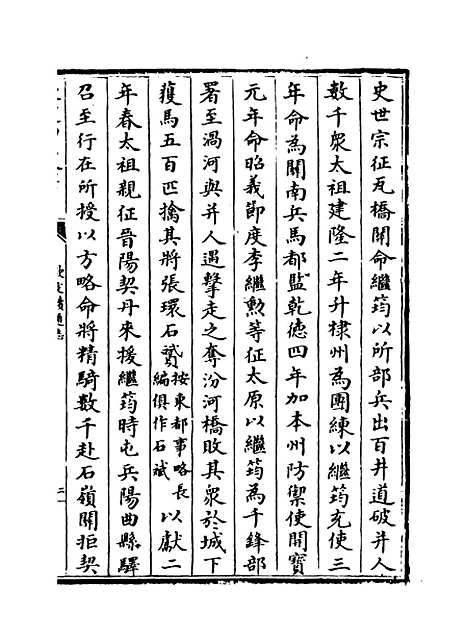 史世宗征瓦橋關命繼筠以所部兵出百井道破并人
數千衆太祖建隆二年升棣州為團練以繼筠充使三
年命為關南兵馬都監乾德四年加本州防禦使開寶
元年命昭義節度李繼勲等征太原以繼筠為千鋒部
署至渦河與并人遇擊走之奪汾河橋敗其衆於城下
獲馬五百匹擒其將張環石贇按東都事略長編俱作石斌以獻二
年春太祖親征晉陽契丹來援繼筠時屯兵陽曲縣驛
召至行在所授以方略命將精騎數千赴石嶺關拒契
欽定續通志